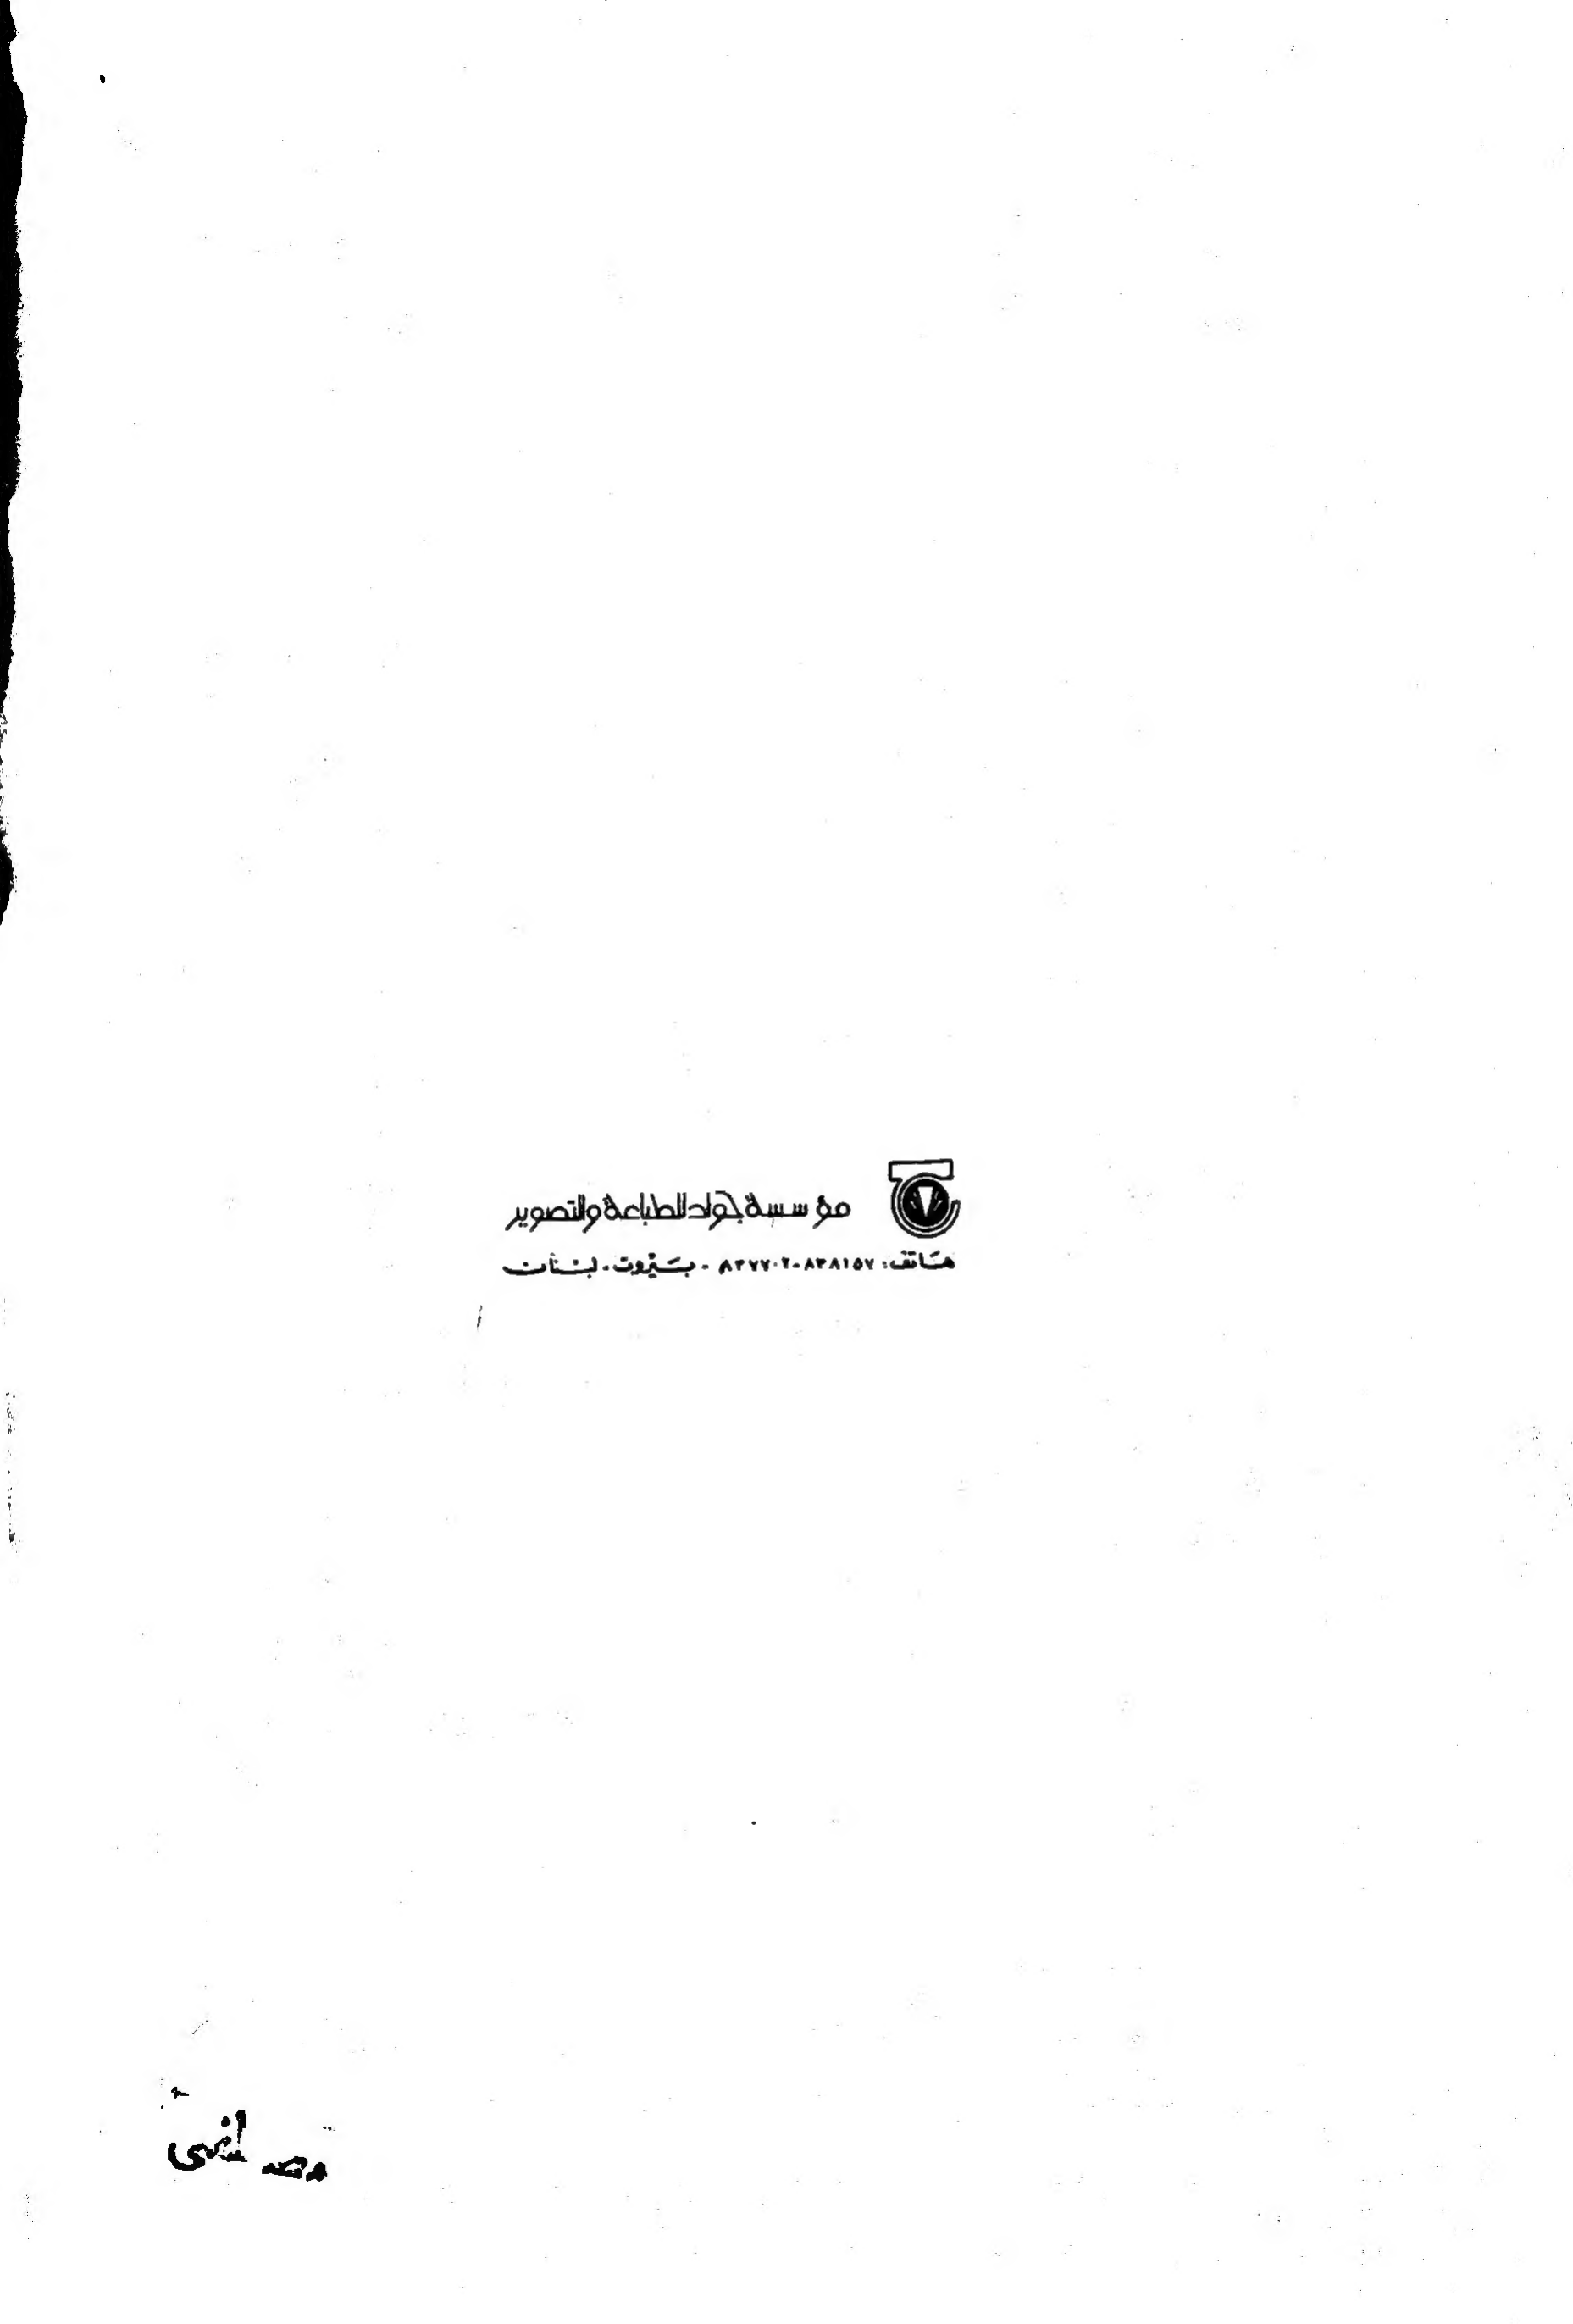 مؤسسة جواد للطباعة والتصوير
هاتف: ٨٣٨١٥٧-٨٣٧٧٠٢ - بيروت - لبنان